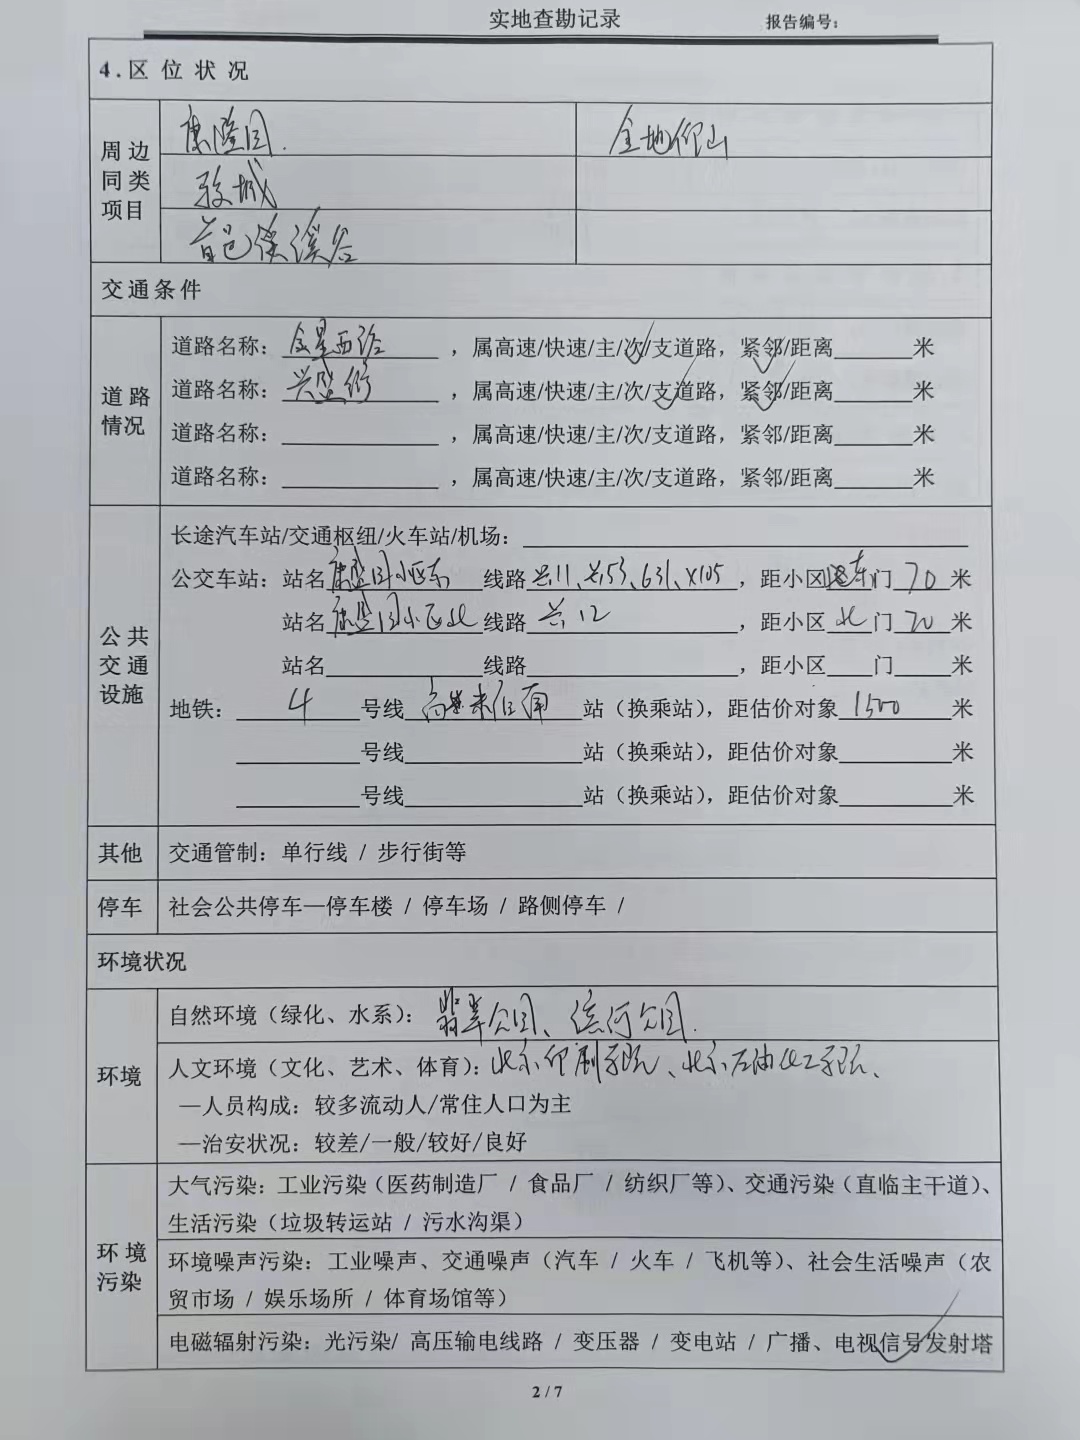 实地查勘记录 报告编号：
4.区 位 状 况
周边同类项目
康隆园. 金地仰山
城
首邑溪谷
交通条件
道路情况
道路名称：金星西路，属高速/快速/主/次/支道路，紧邻/距离______米
道路名称：兴盛街，属高速/快速/主/次/支道路，紧邻/距离______米
道路名称：____________，属高速/快速/主/次/支道路，紧邻/距离______米
道路名称：____________，属高速/快速/主/次/支道路，紧邻/距离______米
公共交通设施
长途汽车站/交通枢纽/火车站/机场：
公交车站：站名康盛园小区东 线路兴11、兴53、631、X105，距小区东门70米
站名康盛园小区北 线路兴12，距小区北门70米
站名____________线路____________，距小区____门____米
地铁：4号线高米店南站（换乘站），距估价对象1500米
______号线____________站（换乘站），距估价对象______米
______号线____________站（换乘站），距估价对象______米
其他 交通管制：单行线 / 步行街等
停车 社会公共停车—停车楼 / 停车场 / 路侧停车 /
环境状况
环境
自然环境（绿化、水系）：翡翠公园、滨河公园.
人文环境（文化、艺术、体育）：北京印刷学院、北京石油化工学院、
—人员构成：较多流动人/常住人口为主
—治安状况：较差/一般/较好/良好
环境污染
大气污染：工业污染（医药制造厂 / 食品厂 / 纺织厂等）、交通污染（直临主干道）、
生活污染（垃圾转运站 / 污水沟渠）
环境噪声污染：工业噪声、交通噪声（汽车 / 火车 / 飞机等）、社会生活噪声（农
贸市场 / 娱乐场所 / 体育场馆等）
电磁辐射污染：光污染/ 高压输电线路 / 变压器 / 变电站 / 广播、电视信号发射塔
2 / 7